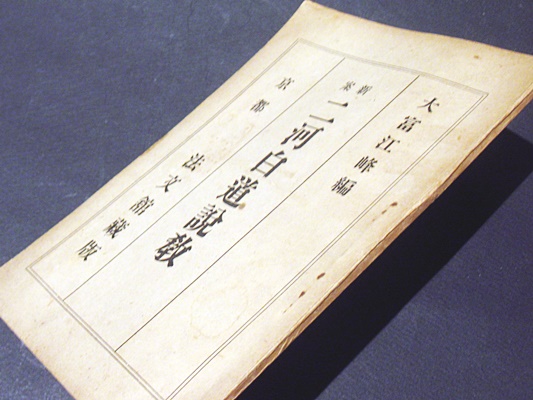 大富江峰編
新案
二河白道説教
京都
法文館蔵版